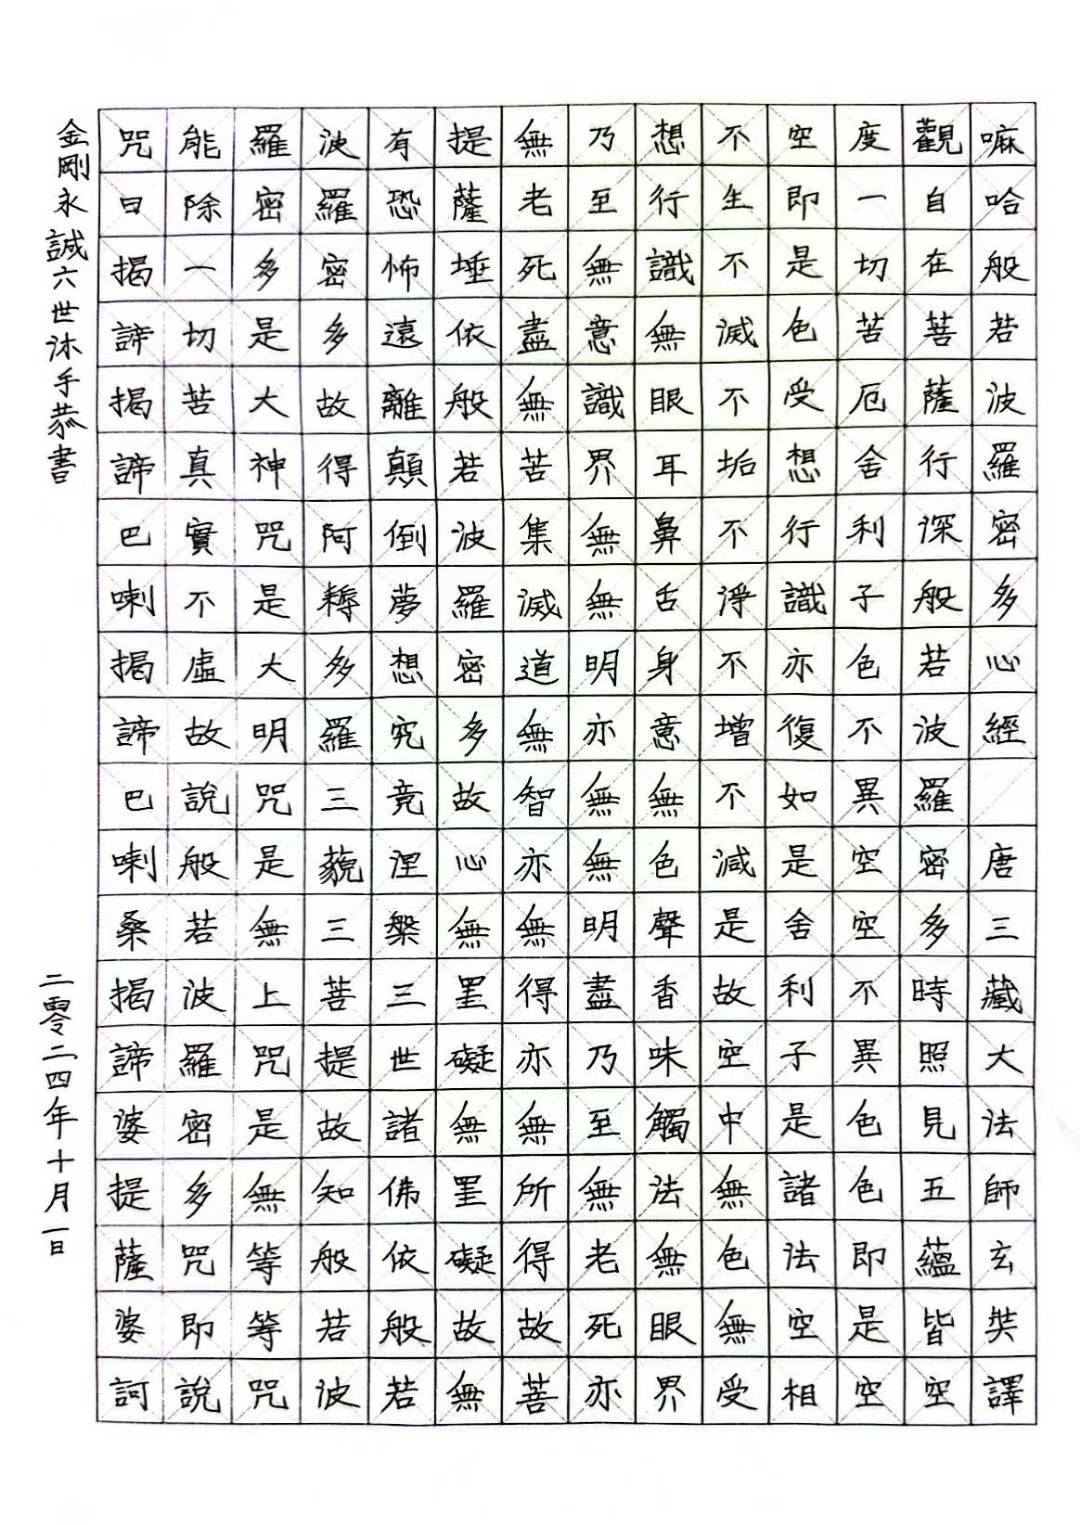 嘛哈般若波羅密多心經 唐三藏大法師玄奘譯
觀自在菩薩行深般若波羅密多時照見五蘊皆空
度一切苦厄舍利子色不異空空不異色色即是空
空即是色受想行識亦復如是舍利子是諸法空相
不生不滅不垢不淨不增不減是故空中無色無受
想行識無眼耳鼻舌身意無色聲香味觸法無眼界
乃至無意識界無明亦無無明盡乃至無老死亦
無老死盡無苦集滅道無智亦無得亦無所得故菩
提薩埵依般若波羅密多故心無罣礙無罣礙故無
有恐怖遠離顛倒夢想究竟涅槃三世諸佛依般若
波羅密多故得阿耨多羅三藐三菩提故知般若波
羅密多是大神咒是大明咒是無上咒是無等等咒
能除一切苦真實不虛故說般若波羅密多咒即說
咒曰揭諦揭諦巴喇揭諦巴喇桑揭諦婆提薩婆訶
金剛永誠六世沐手恭書
二零二四年十月一日